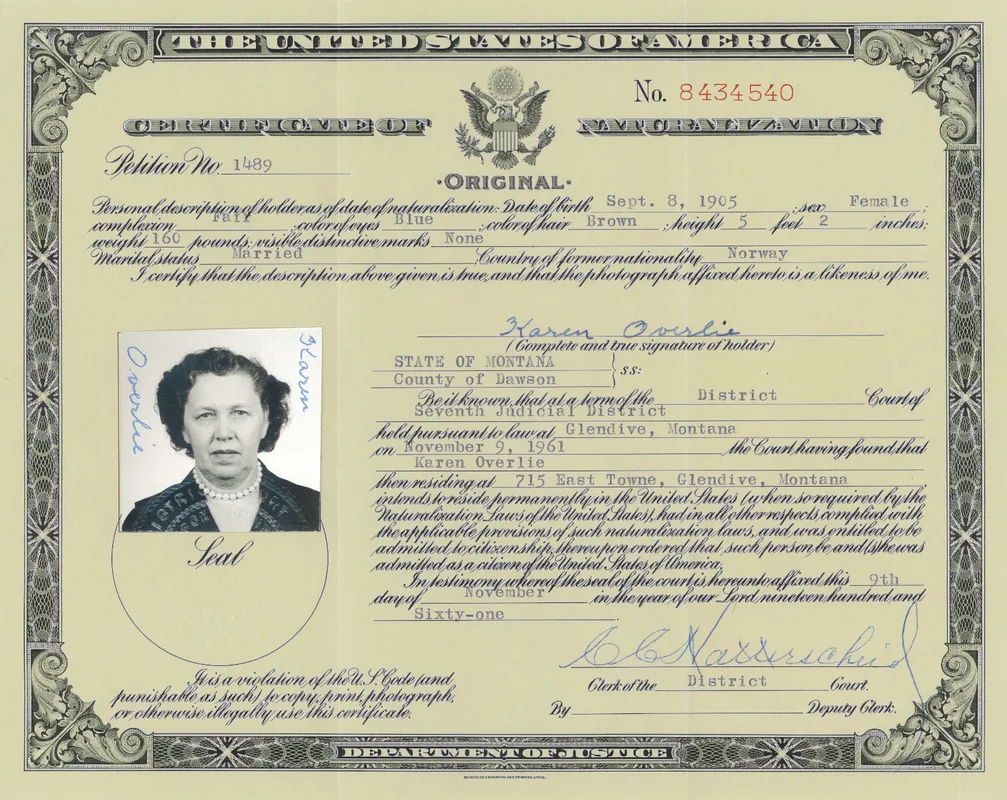 THE UNITED STATES OF AMERICA
No. 8434540
CERTIFICATE OF NATURALIZATION
Petition No. 1489
·ORIGINAL·
Personal description of holder as of date of naturalization: Date of birth Sept. 8, 1905 ; sex Female ;
complexion Fair ; color of eyes Blue ; color of hair Brown ; height 5 feet 2 inches;
weight 160 pounds; visible distinctive marks None
Marital status Married ; Country of former nationality Norway
I certify that the description above given is true, and that the photograph affixed hereto is a likeness of me.
Karen Overlie
(Complete and true signature of holder)
Karen
Overlie
STATE OF MONTANA
County of Dawson
} ss:
Be it known, that at a term of the District Court of
Seventh Judicial District
held pursuant to law at Glendive, Montana
on November 9, 1961 the Court having found that
Karen Overlie
then residing at 715 East Towne, Glendive, Montana
intends to reside permanently in the United States (when so required by the
Naturalization Laws of the United States), had in all other respects complied with
the applicable provisions of such naturalization laws, and was entitled to be
admitted to citizenship, thereupon ordered that such person be and (s)he was
admitted as a citizen of the United States of America.
In testimony whereof the seal of the court is hereunto affixed this 9th
day of November in the year of our Lord nineteen hundred and
Sixty-one
Seal
C C Hatterscheid
Clerk of the District Court.
By Deputy Clerk.
It is a violation of the U.S. Code (and
punishable as such) to copy, print, photograph,
or otherwise illegally use this certificate.
DEPARTMENT OF JUSTICE